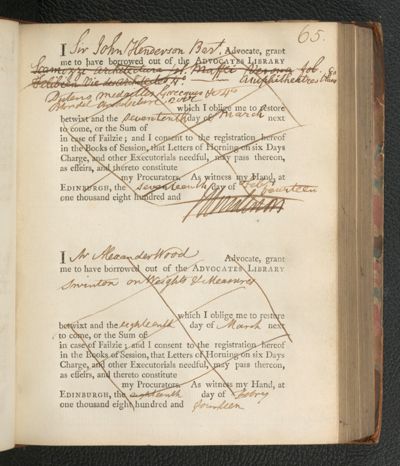 65.
I Sir John Henderson Bart. Advocate, grant
me to have borrowed out of the ADVOCATES LIBRARY
Scamozzi architettura fol. Maffei Verona fol.
Amphitheatres
8vo
which I obligeme to restore
betwixt and the seventeenth day of March next
to come, or the Sum of
in case of Failzie; and I consent to the registration hereof
in the Books of Session, that Letters of Horning on six Days
Charge, and other Executorials needful, may pass thereon,
as effeirs, and thereto constitute
my Procurators. As witness my Hand, at
EDINBURGH, the seventeenth day of Febry
one thousand eight hundred and fourteen
I Mr Alexander Wood Advocate, grant
me to have borrowed out of the ADVOCATES LIBRARY
Swinton on Weights & Measures
which I oblige me to restore
betwixt and the eighteenth day of March next
to come, or the Sum of
in case of Failzie; and I consent to the registration hereof
in the Books of Session, that Letters of Horning on six Days
Charge, and other Executorials needful, may pass thereon,
as effeirs, and thereto constitute
my Procurators. As witness my Hand, at
EDINBURGH, the eighteenth day of Febry
one thousand eight hundred and fourteen